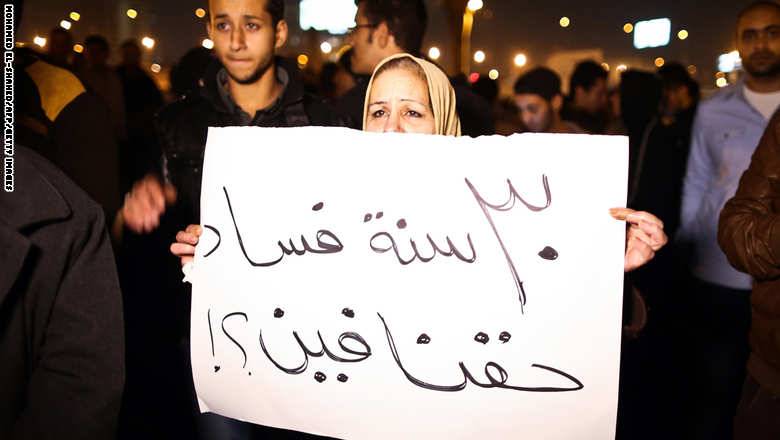 ٣٠ سنة فساد
حقنا فين؟!
MOHAMED EL-SHAHED/AFP/GETTY IMAGES